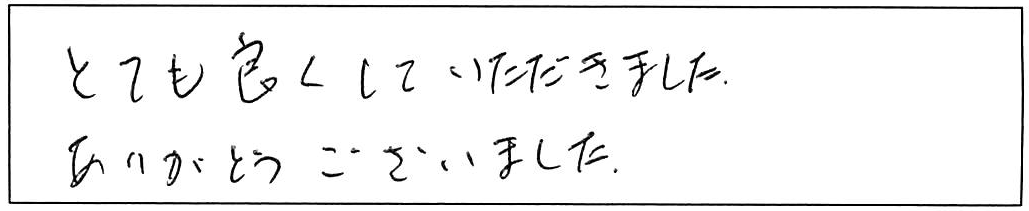 とても良くしていただきました.
ありがとうございました.